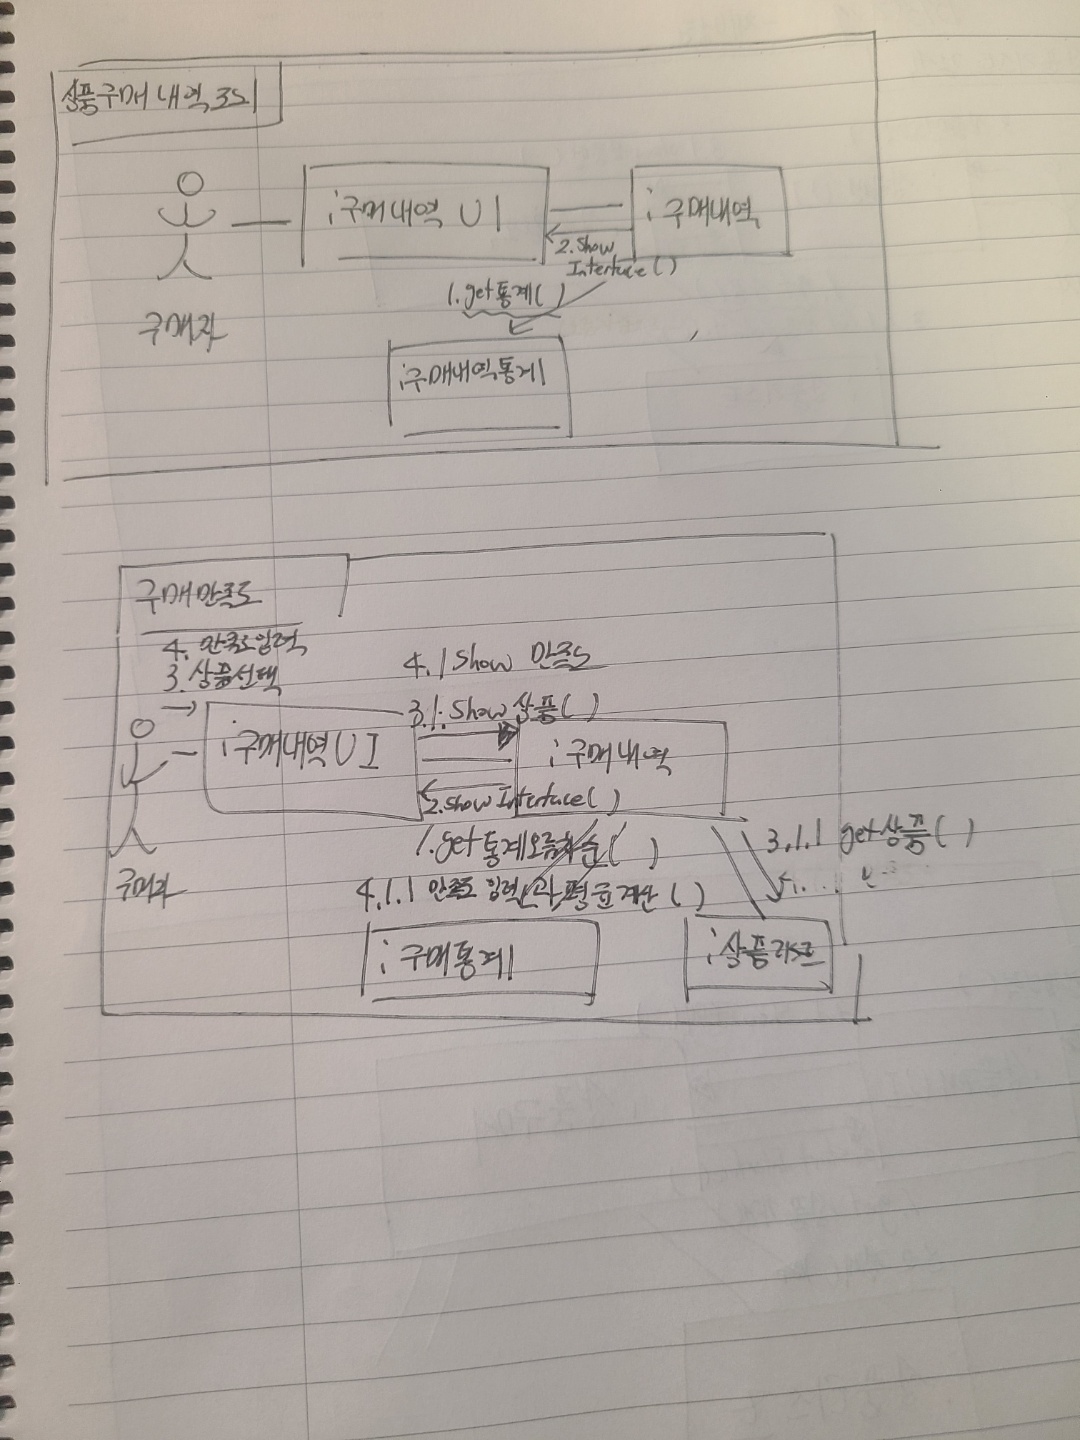 상품구매내역조회
: 구매내역 UI
: 구매내역
2. Show
Interface ( )
1. get통계( )
구매자
: 구매내역통계
구매만족도
4. 만족도입력
3. 상품선택
4.1 Show 만족도
3.1. Show 상품( )
: 구매내역 UI
: 구매내역
2. show Interface( )
1. get 통계오름차순( )
3.1.1 get상품( )
구매자
4.1.1 만족도 입력 과 평균계산 ( )
: 구매통계
: 상품리스트